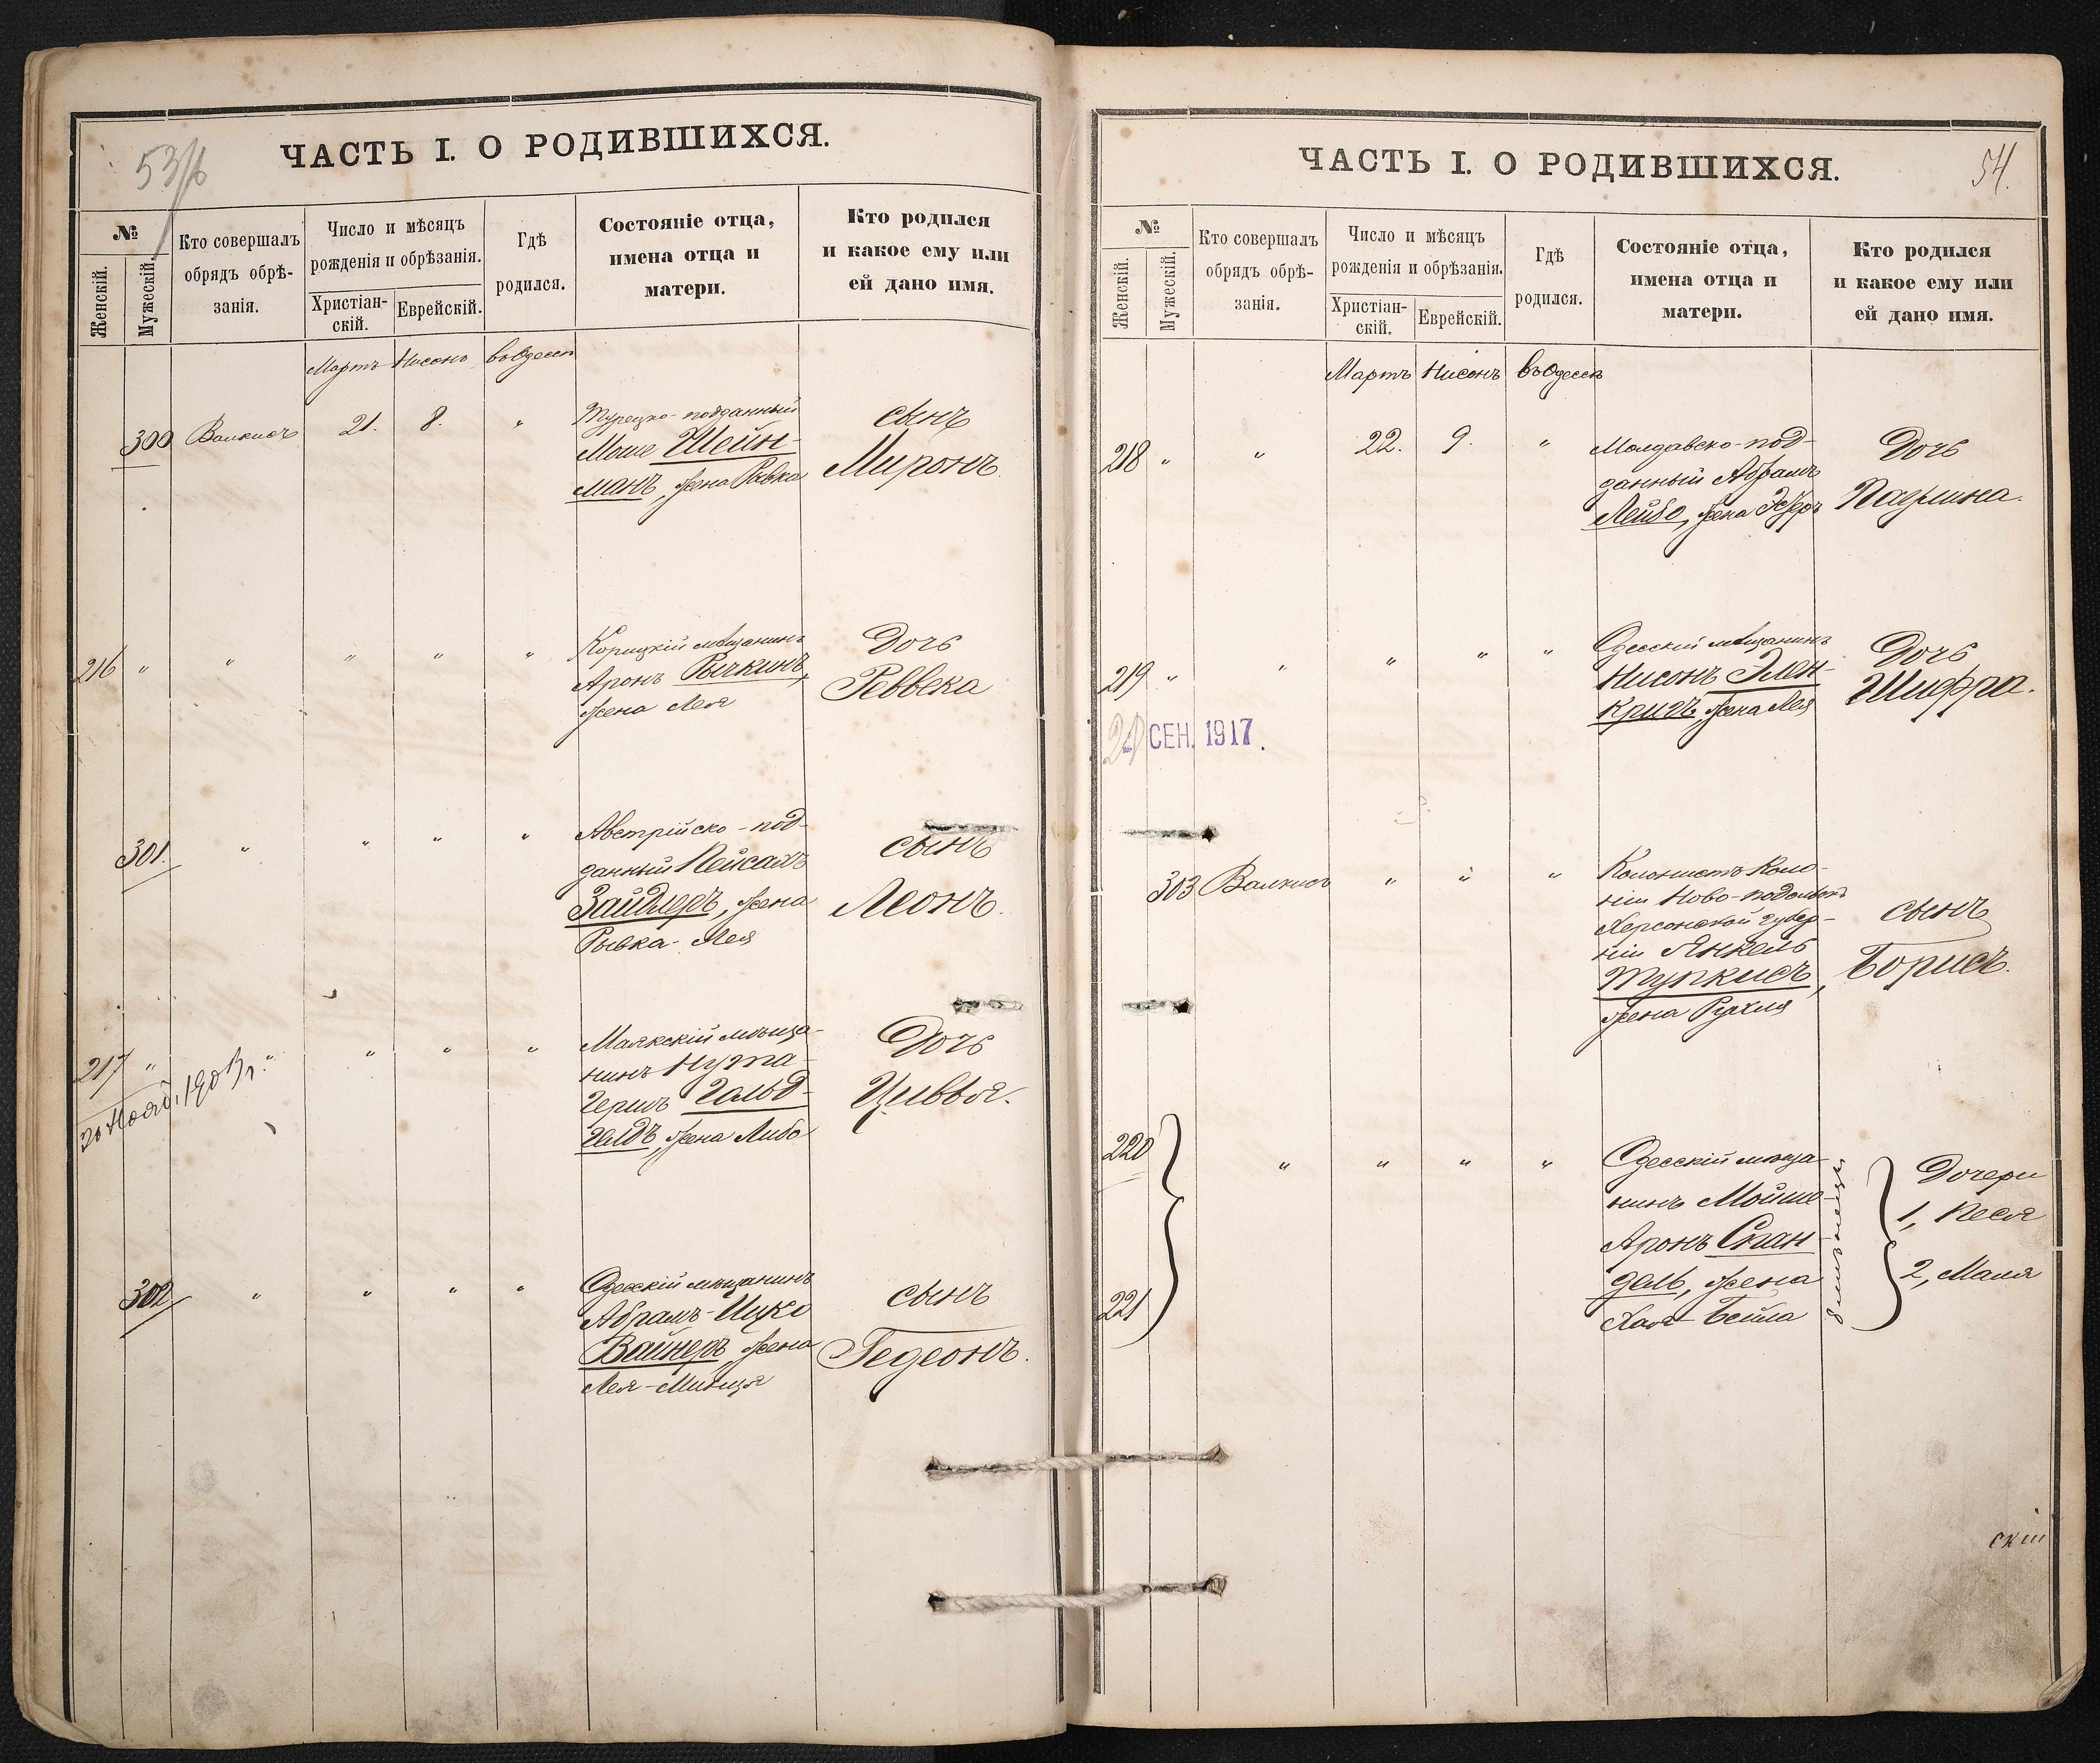 53/б
ЧАСТЬ I. О РОДИВШИХСЯ.
№
Женскій.
Мужескій.
Кто совершалъ
обрядъ обрѣ-
занія.
Число и мѣсяцъ
рожденія и обрѣзанія.
Христіан-
скій.
Еврейскій.
Гдѣ
родился.
Состояніе отца,
имена отца и
матери.
Кто родился
и какое ему или
ей дано имя.
Мартъ Нисонъ въ Одессѣ
300 Валкисъ 21. 8. "
Турецко-подданный
Моше Шейн-
манъ, жена Ривка
сынъ
Миронъ.
216 " " " " "
Корицкій мѣщанинъ
Аронъ Рычкинъ,
жена Лея
Дочь
Реввека
301. " " " "
Австрійско-под-
данный Пейсахъ
Зайдлеръ, жена
Рывка-Лея
сынъ
Леонъ.
217 " " " " "
30 Нояб. 1903 г.
Маякскій мѣща-
нинъ Нута-
Гершъ Гольд-
гелдъ, жена Либа
Дочь
Цивья.
302 " " " "
Одесскій мѣщанинъ
Абрамъ-Ицко
Вайнеръ, жена
Лея-Минця
сынъ
Гедеонъ.
54.
ЧАСТЬ I. О РОДИВШИХСЯ.
№
Женскій.
Мужескій.
Кто совершалъ
обрядъ обрѣ-
занія.
Число и мѣсяцъ
рожденія и обрѣзанія.
Христіан-
скій.
Еврейскій.
Гдѣ
родился.
Состояніе отца,
имена отца и
матери.
Кто родился
и какое ему или
ей дано имя.
Мартъ Нисонъ въ Одессѣ
218 " " 22. 9. "
Молдавско-под-
данный Абрамъ
Лейбо, жена
Дочь
Паулина.
219 " " " " "
Одесскій мѣщанинъ
Нисонъ Элен-
кригъ, жена Лея
Дочь
Шифра.
СЕН. 1917.
303 Валкисъ " " "
Колонистъ Коло-
ніи Ново-подольскъ
Херсонской губер-
ніи Янкель
Тупкисъ,
жена Рухля
сынъ
Борисъ.
220 " " " "
221
Одесскій мѣща-
нинъ Мойше
Аронъ Спан
дель, жена
Хая-Бейла
близнецы
Дочери
1, Песя
2, Маля
скій